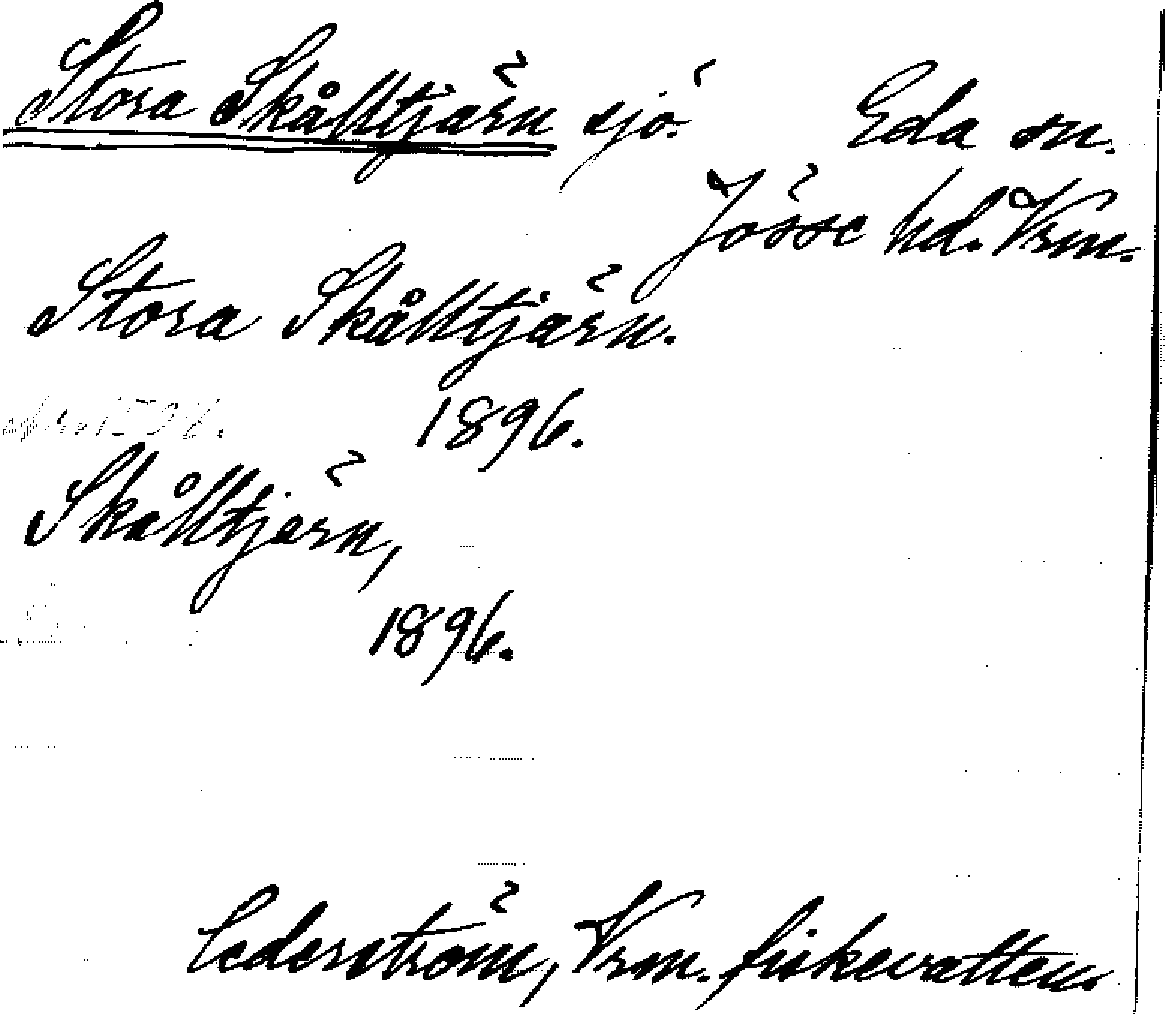 Stora Skålltjärn sjö. Eda sn.
Jösse hd. Vrm.
Stora Skålltjärn.
1896.
Skålltjärn,
1896.
Cederström, Vrm. fiskevatten.